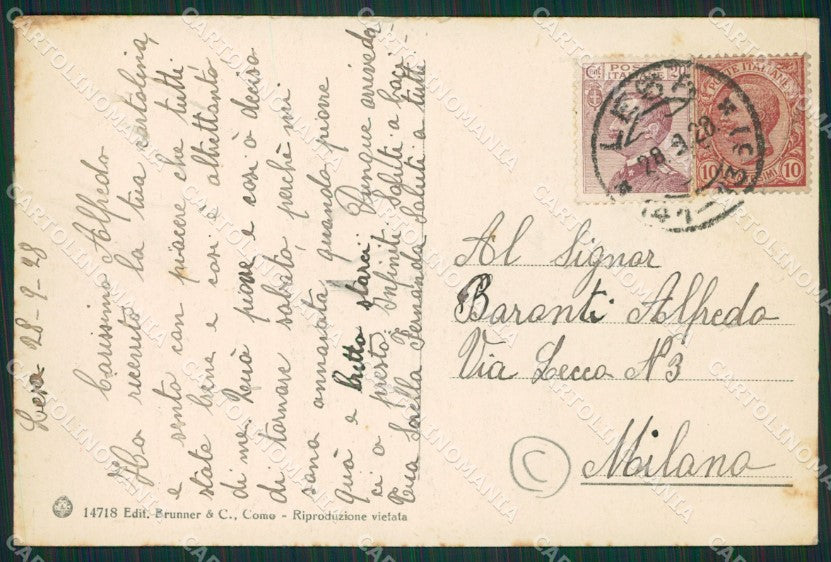 Lesa 28-9-28
Carissimo Alfredo
Ho ricevuto la tua cartolina,
e sento con piacere che tutti
state bene e così e altrettanto
di me. Quà piove e così ò deciso
di tornare sabato, perchè mi
sono annoiata quando piove
quà e brutto starci. Dunque arrivedo-
ci a presto. Infiniti saluti e baci
tua Sorella Fernanda Saluti a tutti
14718 Edit. Brunner & C., Como - Riproduzione vietata
POSTE ITALIANE
POSTE ITALIANE
10 10
LESA
28.9.28
Al Signor
Baranti Alfredo
Via Lecco N3
Milano
C
CARTOLINOMANIA